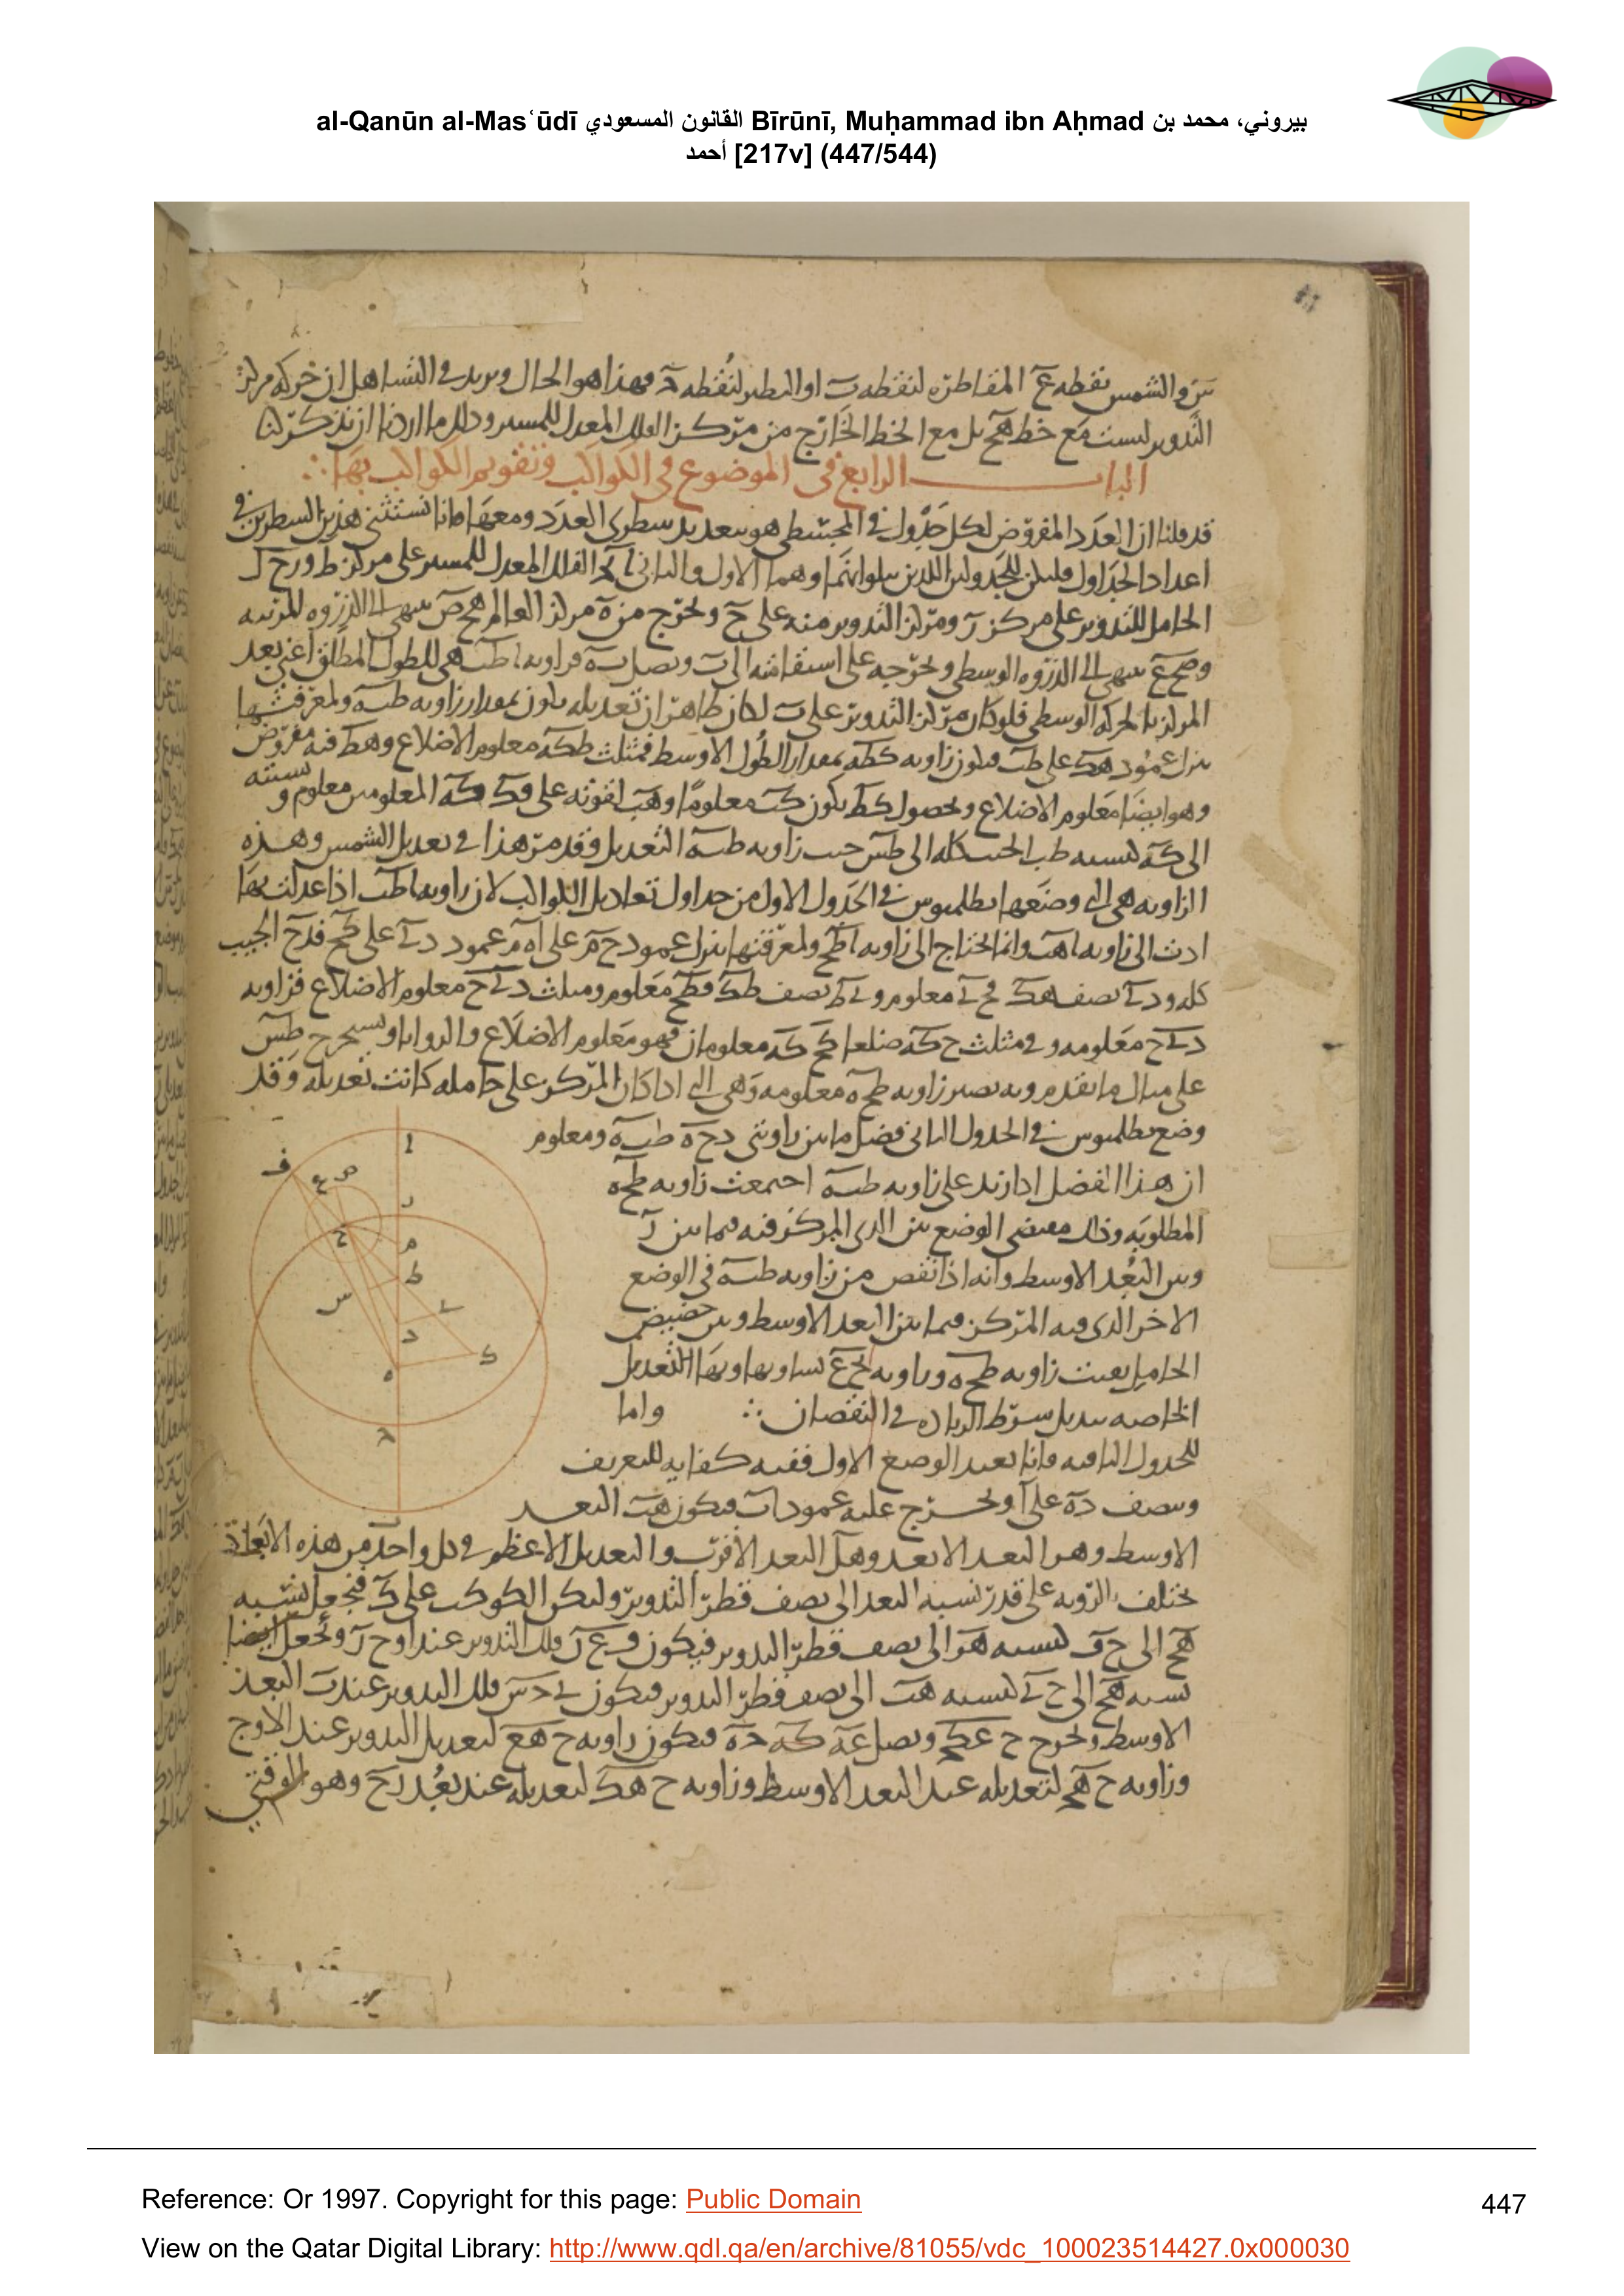 al-Qanūn al-Masʿūdī القانون المسعودي Bīrūnī, Muḥammad ibn Aḥmad بيروني، محمد بن
أحمد [217v] (447/544)
والشمس نقطه المقاطره لنقطه او النطير لنقطه فهذا هو الحال ويريد في التساهل ان حركه مركز
التدوير ليست مع خط هح بل مع الخط الخارج من مركز الفلك المعدل للمسير وذلك ما اردنا ان نذكر لنا
الباب الرابع في الموضوع في الكواكب وتقويم الكواكب بها
قد قلنا ان العدد المفروض لكل جدول في المجسطي هو بعد سطري العدد ومعها فانا نستثني هذين السطرين في
اعداد الجداول فليكن للجدولين اللذين يتلوانهما وهما الاول والثاني الفلك المعدل للمسير على مركز ط ورح
الحامل للتدوير على مركز ومركز التدوير منه على ح ونخرج من ه مركز العالم هح ينتهي الى الذروه المرئيه
وطح ع ينتهي الى الذروه الوسطى ونخرجه على استقامته الى ونصل فزاويه اطب هي للطول المطلق اعني بعد
المركز بالحركه الوسطى فلو كان مركز التدوير على ب لكان ظاهرا ان تعديله يكون بمقدار زاويه طبه ولمعرفتها
ننزل عمود هك على طب فيكون زاويه كطه بمقدار الطول الاوسط فمثلث طكه معلوم الاضلاع وهط فيه مفروض
وهو ايضا معلوم الاضلاع وبحصول كط يكون كب معلوما وهب لقوته على المعلومين معلوم ونسبته
الى كه كنسبه طب الجيب كله الى طس جيب زاويه طبه التعديل وقد مر هذا في تعديل الشمس وهذه
الزاويه هي التي وضعها بطلميوس في الجدول الاول من جداول تعاديل الكواكب لان زاويه اطب اذا عدلت بها
ادت الى زاويه اهب وانما نحتاج الى زاويه اطح ولمعرفتها ننزل عمود حم على اه ثم عمود دل على كح فدح الجيب
كله ودل نصف هك فح ل معلوم ول ط نصف طك فطح معلوم ومثلث دلح معلوم الاضلاع فزاويه
دلح معلومه وفي مثلث ح كه ضلعا كح كه معلومان فهو معلوم الاضلاع والزوايا ونستخرج طس
على مثال ما تقدم وبه تصير زاويه طحه معلومه وهي التي اذا كان المركز على حامله كانت تعديله وقد
وضع بطلميوس في الجدول الثاني فضل ما بين زاويتي دحه طبه ومعلوم
ان هذا الفضل اذا زيد على زاويه طبه اجتمعت زاويه طحه
المطلوبه وذلك مقتضى الوضع الذي المركز فيه فيما بين
وبين البعد الاوسط وانه اذا نقص من زاويه طبه في الوضع
الاخر الذي فيه المركز فيما بين البعد الاوسط وبين حضيض
الحامل بقيت زاويه طحه وزاويه تساويها وبها التعديل
الخاصه بتبديل شرط الزياده في النقصان ∴ واما
للجدول الثامنه فانا نعيد الوضع الاول ففيه كفايه للتعريف
وننصف ده على ونخرج عليه عمود فيكون هت البعد
الاوسط وهر البعد الابعد وهل البعد الاقرب والتعديل الاعظم في كل واحد من هذه الابعاد
يختلف الرؤيه على قدر نسبه البعد الى نصف قطر التدوير وليكن الكوكب على ك فنجعل نسبه
هح الى ح ف كنسبه هر الى نصف قطر التدوير فيكون فلك التدوير عند اوج ونجعل ايضا
نسبه هح الى ح كنسبه هت الى نصف قطر التدوير فيكون فلك التدوير عند البعد
الاوسط ونخرج ونصل فيكون زاويه ح هع لتعديل التدوير عند الاوج
وزاويه لتعديله عند البعد الاوسط وزاويه ح هك لتعديله عند بعد وهو الوقتي
Reference: Or 1997. Copyright for this page: Public Domain
View on the Qatar Digital Library: http://www.qdl.qa/en/archive/81055/vdc_100023514427.0x000030
447